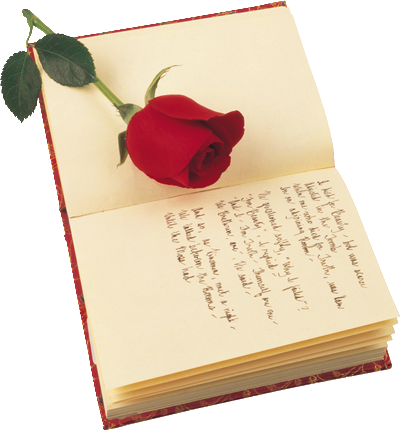 I died for Beauty - but was scarce
Adjusted in the Tomb
When One who died for Truth, was lain
In an adjoining Room -
He questioned softly, "Why I failed"?
"For Beauty", I replied -
"And I - for Truth - Themself are One -
We Brethren, are", He said -
And so, as Kinsmen, met a Night -
We talked between the Rooms -
Until the Moss had